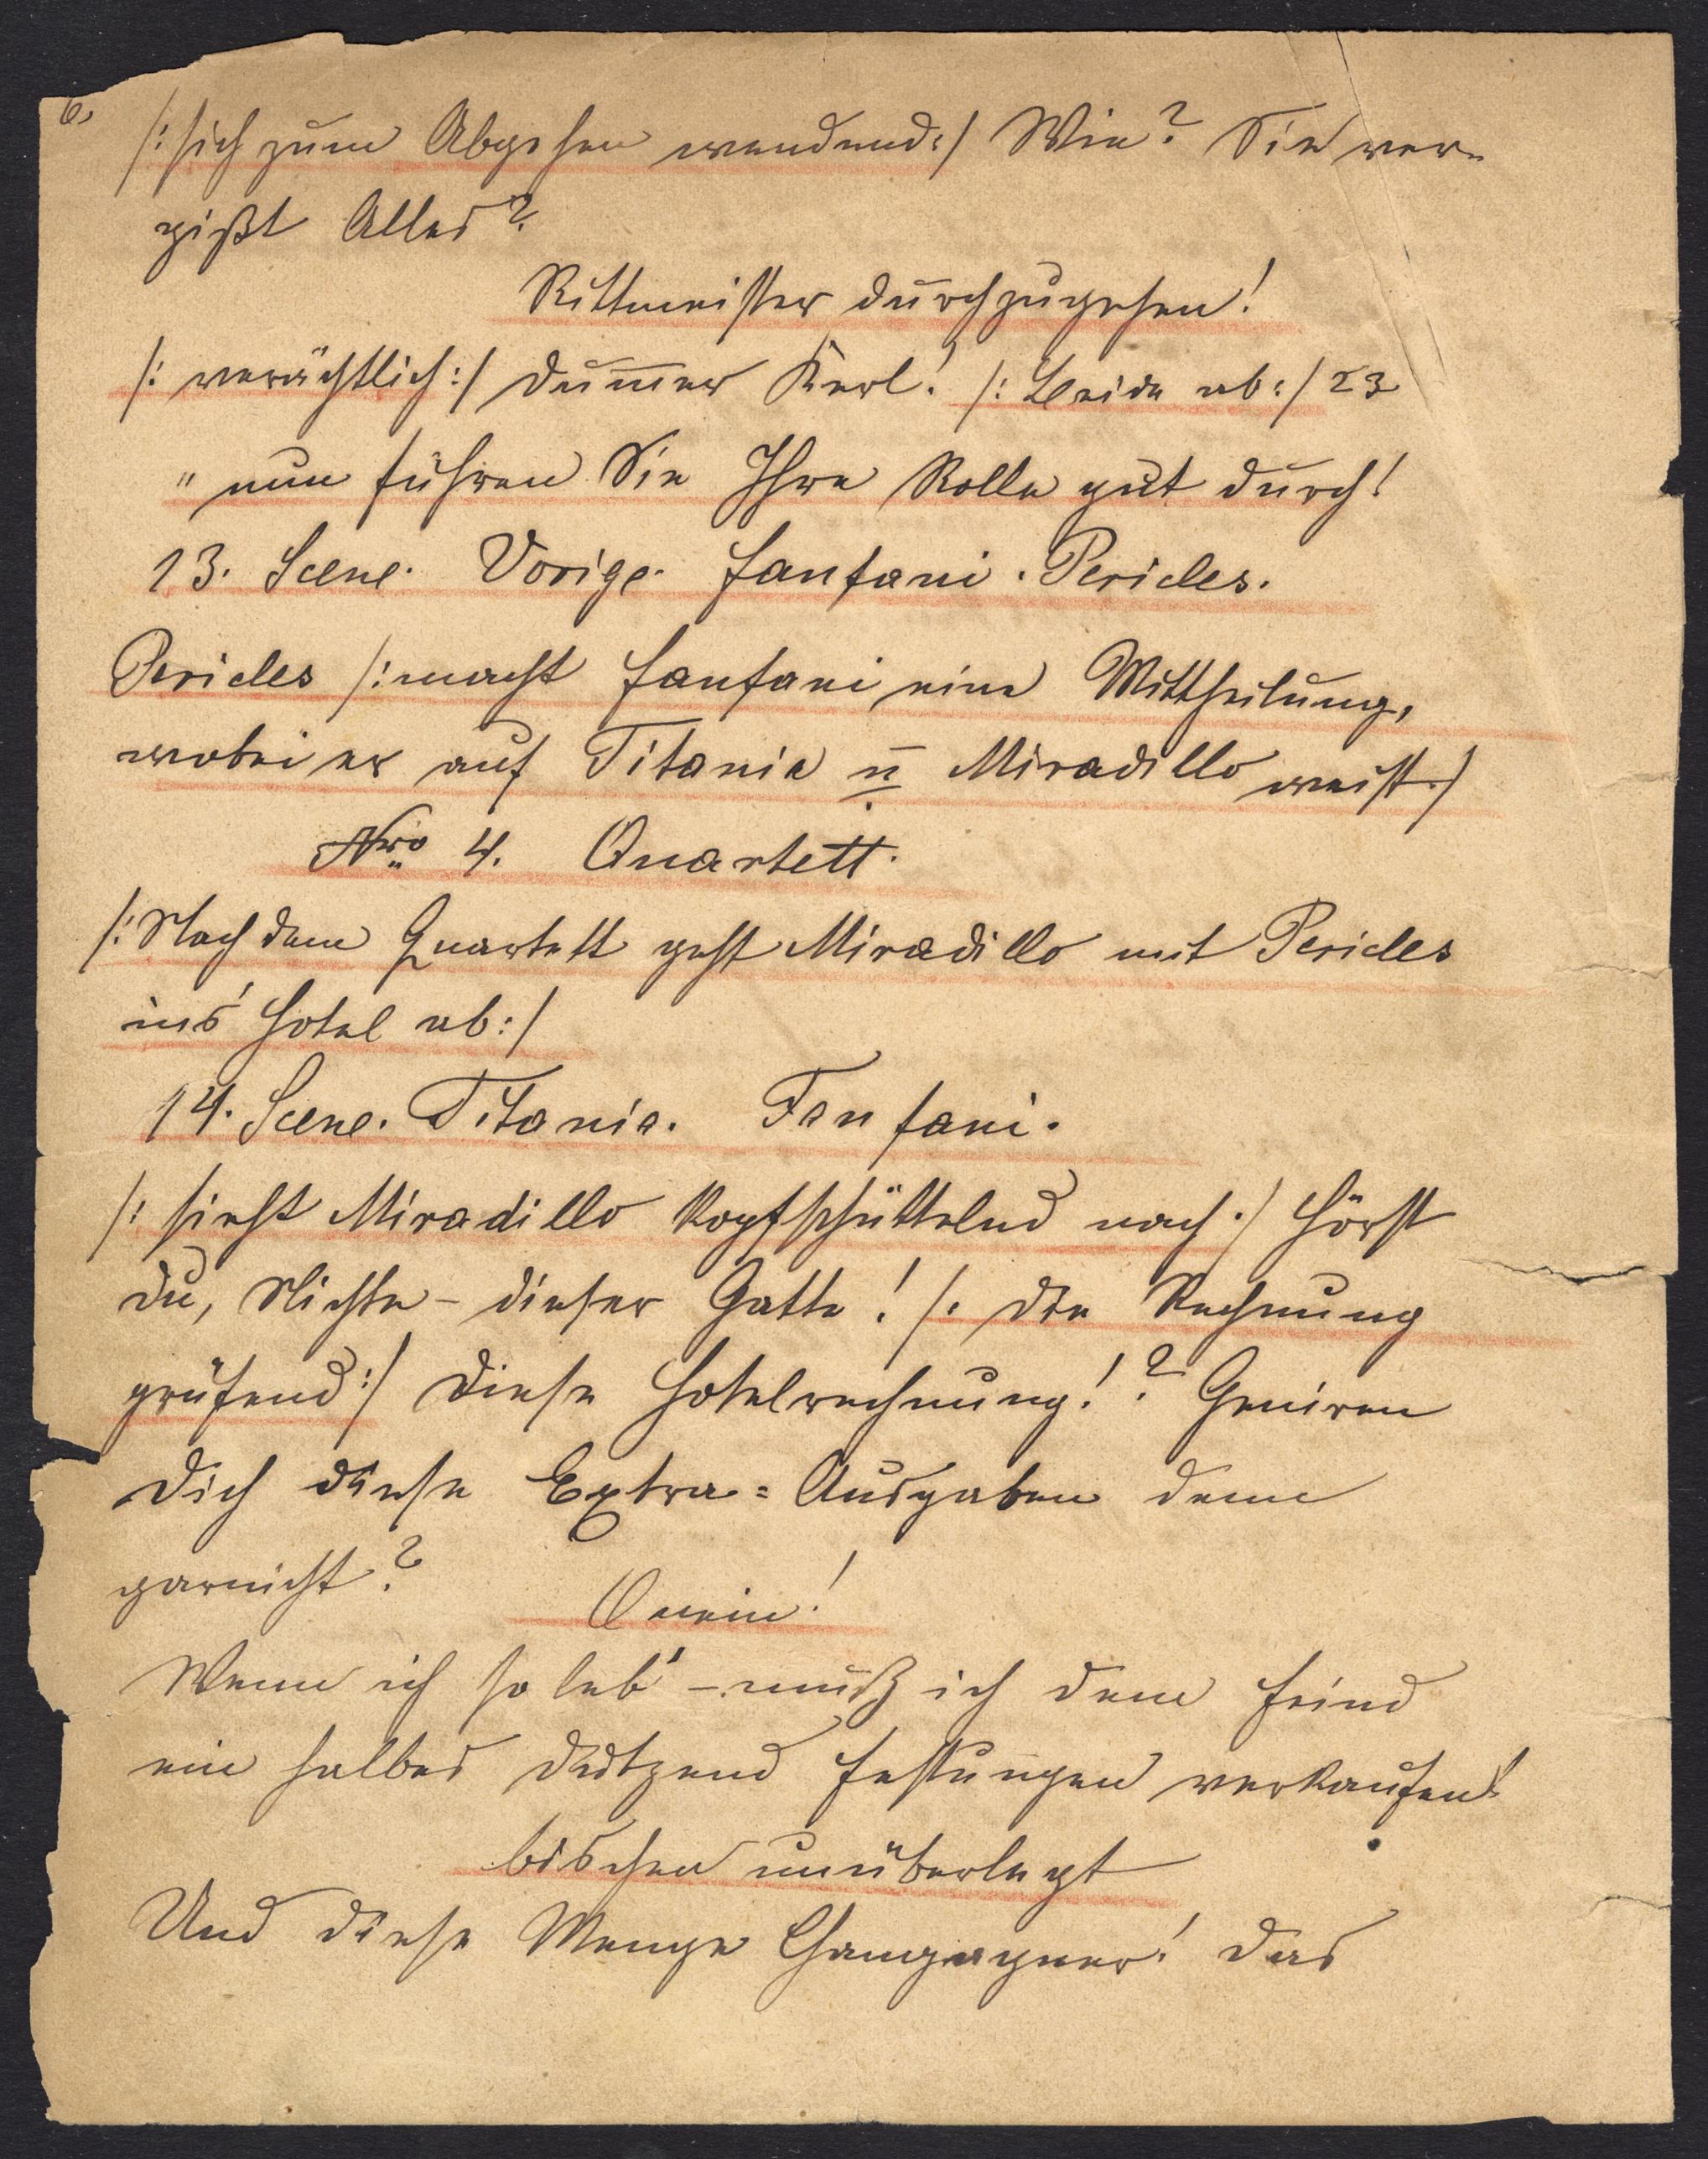 6,
/: sich zum Abgehen wendend :/ Wie? Sie ver-
gißt Alles?
Rittmeister durchzugehen!
/: verächtlich :/ Dum̄er Kerl! /: Beide ab :/ 23
" nun führen Sie Ihre Rolle gut durch!
13. Scene. Vorige. Fanfani. Pericles.
Pericles /: macht Fanfani eine Mittheilung,
wobei er auf Titania u Miradillo weist :/
Nro 4. Quartett.
/: Nach dem Quartett geht Miradillo mit Pericles
in's Hotel ab :/
14. Scene. Titania. Fanfani.
/: sieht Miradillo kopfschüttelnd nach :/ Hörst
Du, Nichte - dieser Gatte! /: die Rechnung
prüfend :/ Diese Hotelrechnung!? Geniren
Dich diese Extra = Ausgaben denn
garnicht?
O nein!
Wenn ich so leb' - muß ich dem Feind
ein halbes Dutzend Festungen verkaufen!
bischen unüberlegt
Und diese Menge Champagner! Das